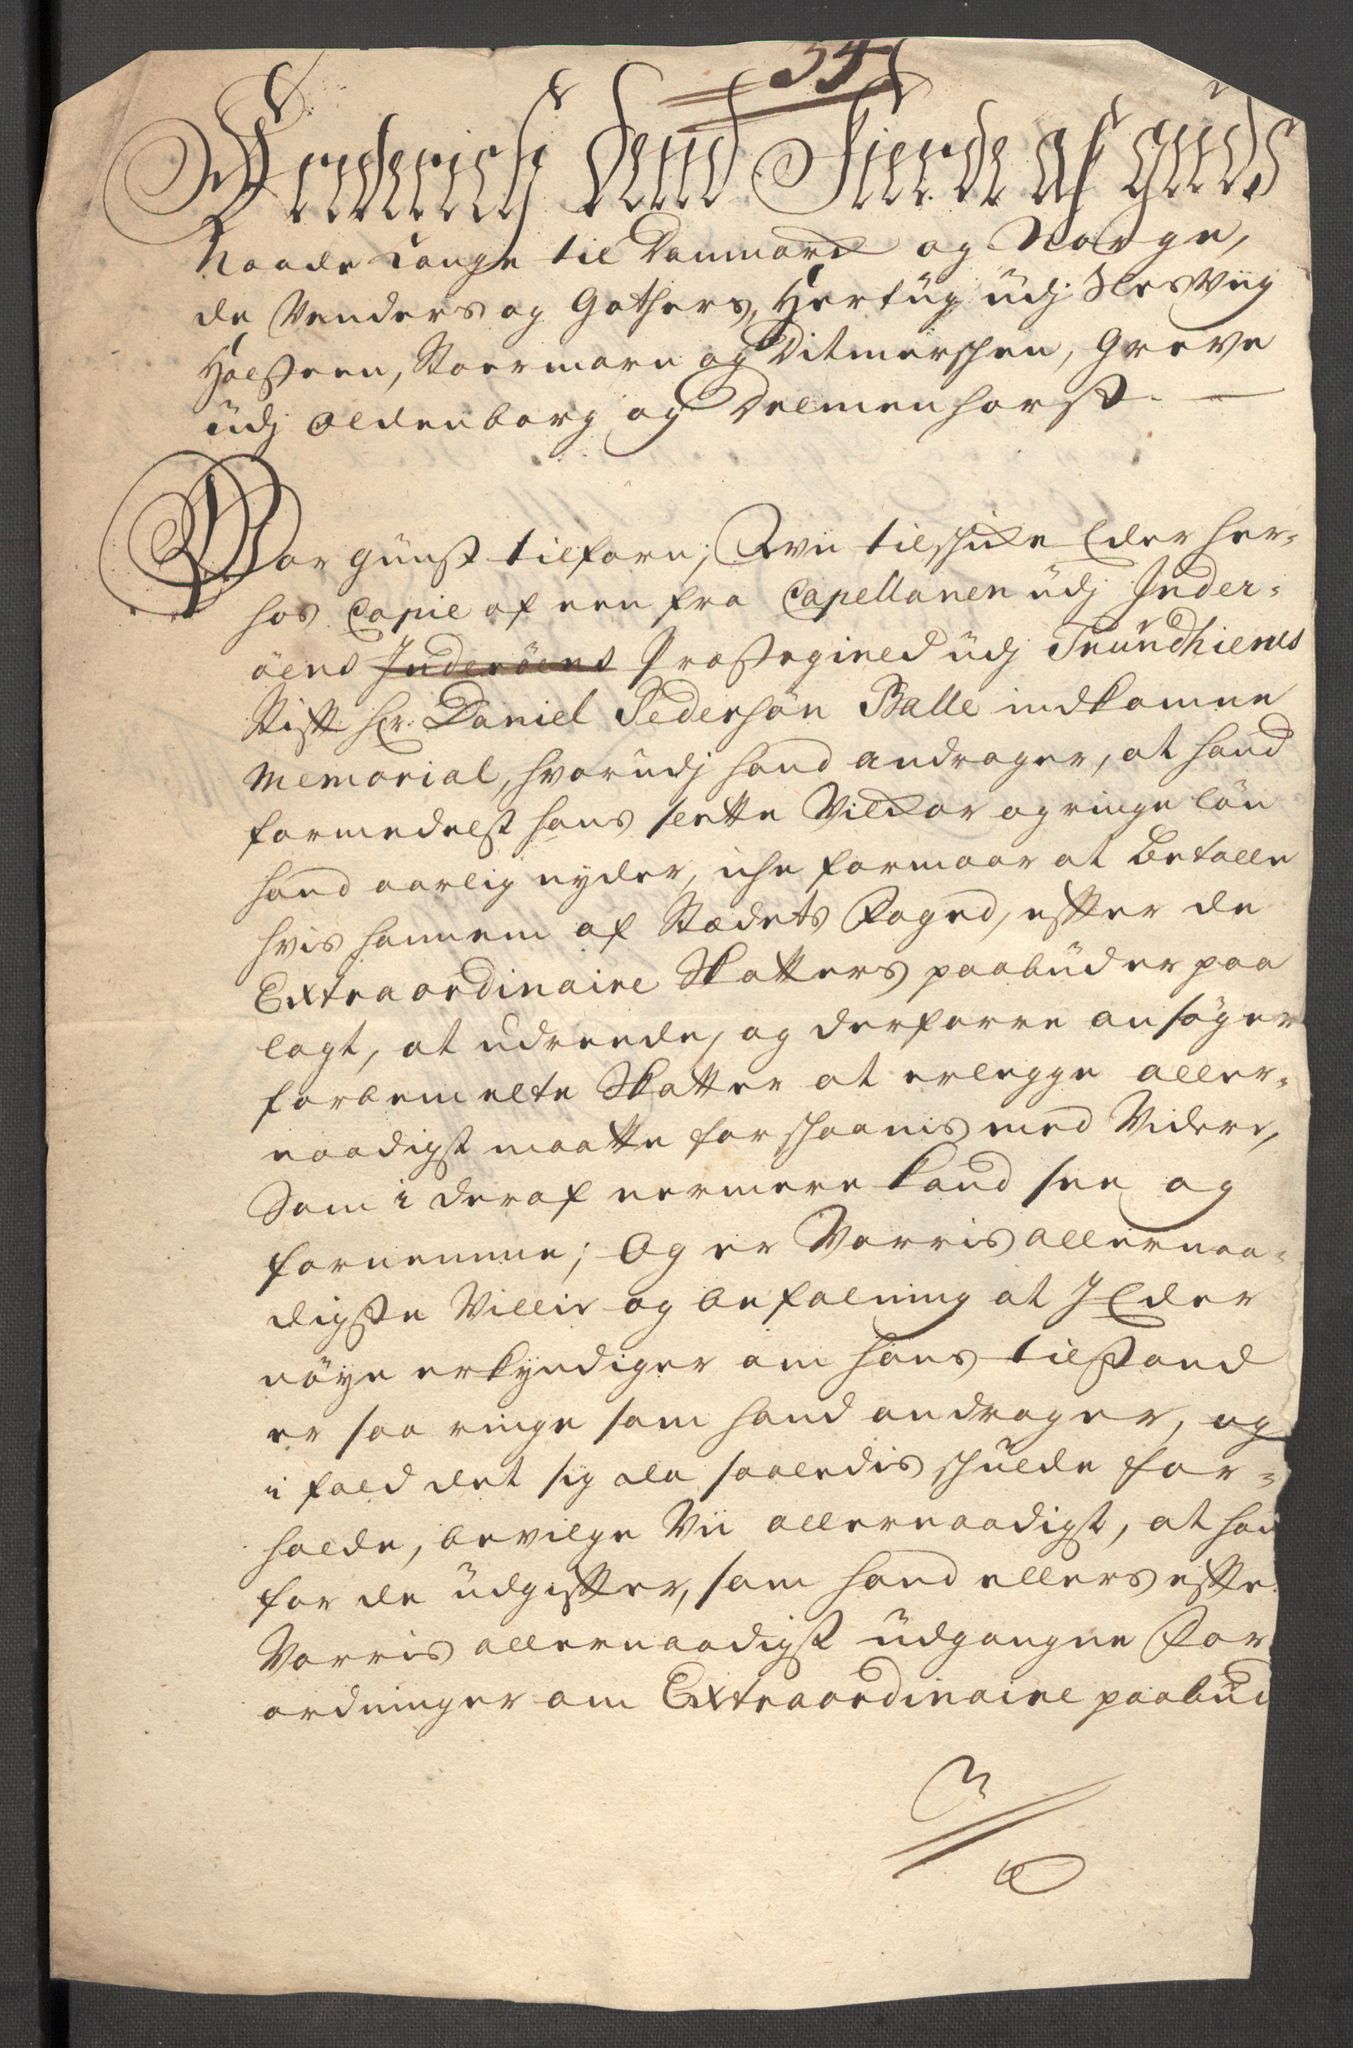 34
Friderich dend Fierde af Guds
Naade Konge til Danmarck og Norge,
de Venders og Gothers, Hertug udj Slesviig
Holsteen, Stoermarn og Ditmerschen, Greve
udj Oldenborg og Delmenhorst. —
Vor gunst tilforn; Wii tilschicke Eder her-
hos Copie af een fra Capellanen udj Inder-
øens Inderøens Præstegield udj Trundhiems
Stift Hr. Daniel Pedersøn Balle indkomne
Memorial, hvorudj hand andrager, at hand
formedelst hans slette Vilckor og ringe løn
hand aarlig nyder, iche formaar at betalle
hvis hannem af Stædets Foged, efter de
Extraordinaire Skatters paabuder paa
lagt, at udreede, og derforre ansøger
forbemelte Skatter at erlegge aller-
naadigst maatte forschaanis med Videre,
Som i deraf nermere kand see og
fornemme; Og er Vorris allernaa-
digste Villie og befalning at I Eder
nøye erkyndiger om hans tilstand
er saa ringe som hand andrager, og
i fald det sig da saaledis schulde for-
holde, bevilge Vii allernaadigst, at hand
for de udgifter, som hand ellers efter
Vorris allernaadigst udgangne For
ordninger om Extraordinaire paabud